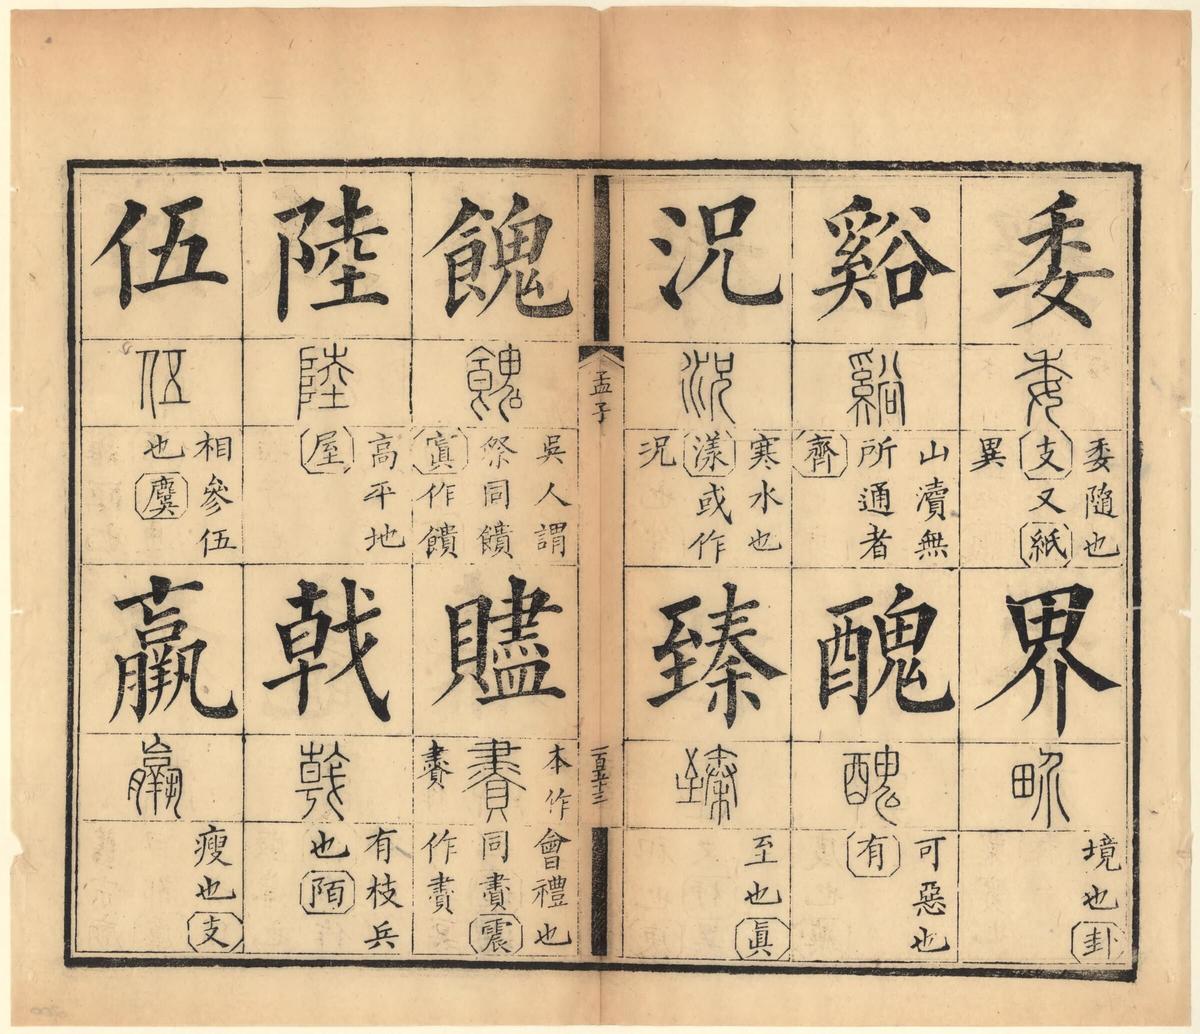 委
委
委隨也
支又紙
異
界
界
境也卦
谿
谿
山瀆無
所通者
齊
醜
醜
可惡也
有
況
況
寒水也
漾或作
況
臻
臻
至也眞
孟子
一百五十三
餽
餽
吳人謂
祭同饋
寘作饋
贐
本作會禮也
賮同賮震
賮作賮
陸
陸
高平地
屋
戟
戟
有枝兵
也陌
伍
伍
相參伍
也麌
羸
羸
瘦也支